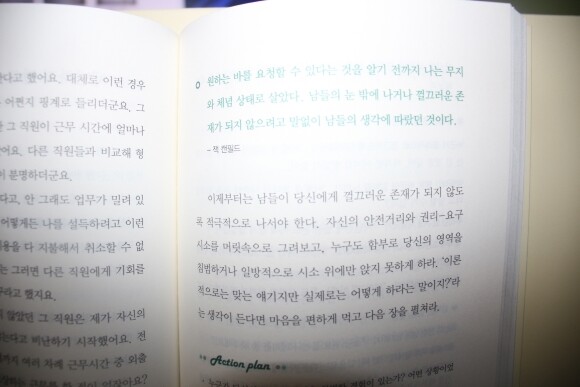 다고 했어요. 대체로 이런 경우
어쩐지 핑계로 들리더군요. 그
그 직원이 근무 시간에 얼마나
어요. 다른 직원들과 비교해 형
분명하더군요.
다고, 안 그래도 업무가 밀려 있
어떻게든 나를 설득하려고 이런
용을 다 지불해서 취소할 수 없
는 그러면 다른 직원에게 기회를
라고 했지요.
지 않았던 그 직원은 제가 자신의
는다고 비난하기 시작했어요. 전
까지 여러 차례 근무시간 중 외출
원하는 바를 요청할 수 있다는 것을 알기 전까지 나는 무지
와 체념 상태로 살았다. 남들의 눈 밖에 나거나 껄끄러운 존
재가 되지 않으려고 말없이 남들의 생각에 따랐던 것이다.
- 잭 캔필드
이제부터는 남들이 당신에게 껄끄러운 존재가 되지 않도
록 적극적으로 나서야 한다. 자신의 안전거리와 권리-요구
시소를 머릿속으로 그려보고, 누구도 함부로 당신의 영역을
침범하거나 일방적으로 시소 위에만 앉지 못하게 하라. '이론
적으로는 맞는 얘기지만 실제로는 어떻게 하라는 말이지?'라
는 생각이 든다면 마음을 편하게 먹고 다음 장을 펼쳐라.
Action plan
있는가? 어떤 상황이었